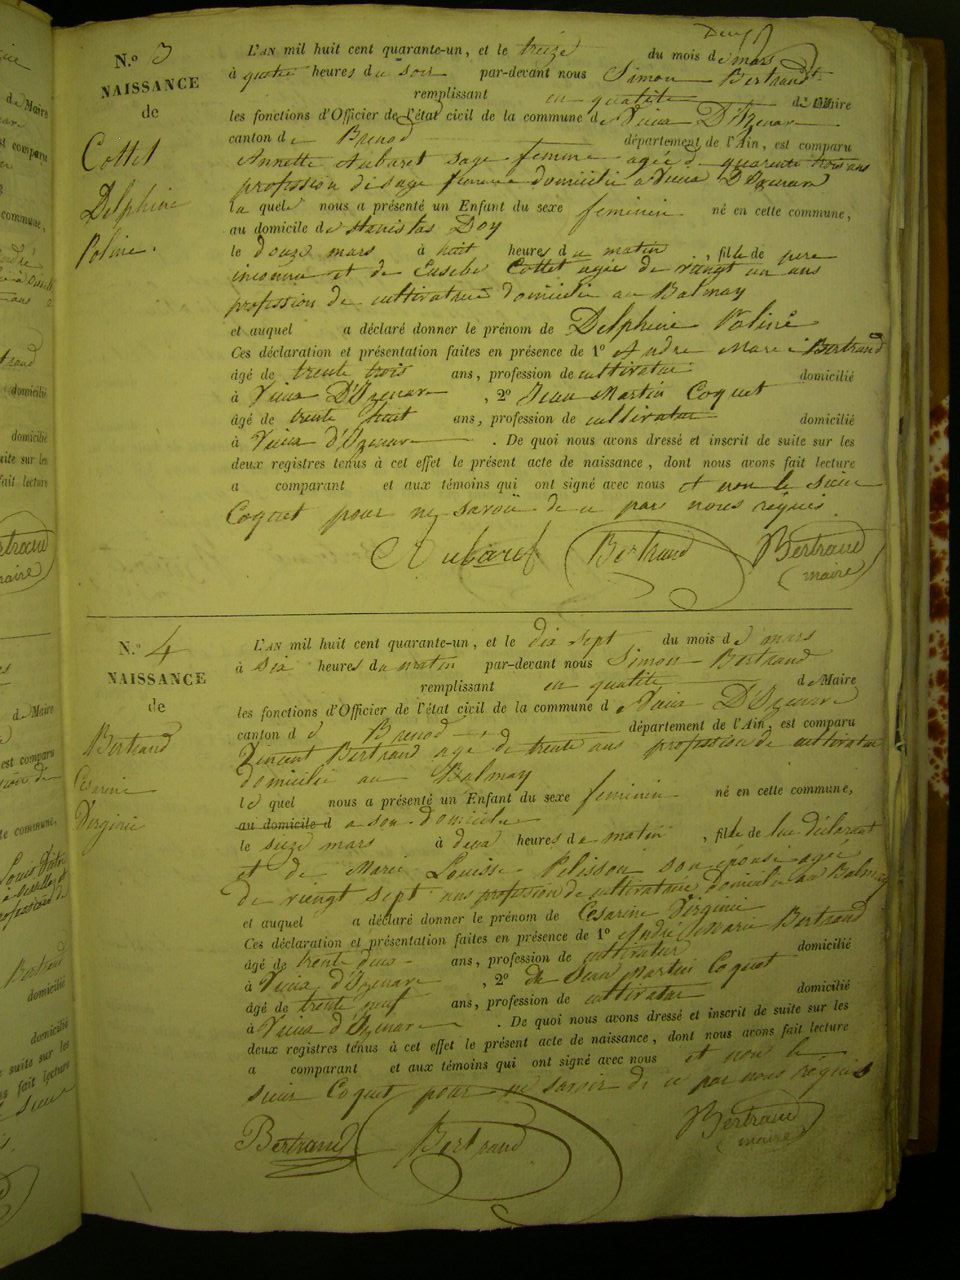 N.o 3
NAISSANCE
de
Cottet
Delphine
Poline.
L'AN mil huit cent quarante-un, et le treize du mois de mars
à quatre heures du soir par-devant nous Simon Bertrand
remplissant en qualité de Maire
les fonctions d'Officier de l'état civil de la commune de Vieux D'Izenave
canton de Brenod département de l'Ain, est comparu
Annette Aubaret sage femme agée de quarente trois ans
profession de sage femme domicilié a Vieux D'Izenave
la quele nous a présenté un Enfant du sexe feminin né en cette commune,
au domicile de stanislas Doy
le douze mars à huit heures du matin, fille de pere
inconnu et de Eusebe Cottet agée de vingt un ans
profession de cultivatrice domicilié au Balmay
et auquel a déclaré donner le prénom de Delphine Poline
Ces déclaration et présentation faites en présence de 1o Andre Marie Bertrand
âgé de trente trois ans, profession de cultivateur domicilié
à Vieux D'Izenave, 2o Jean Martin Coquet
âgé de trente huit ans, profession de cultivateur domicilié
à Vieux d'Izenave. De quoi nous avons dressé et inscrit de suite sur les
deux registres tenus à cet effet le présent acte de naissance, dont nous avons fait lecture
a comparant et aux témoins qui ont signé avec nous et non le sieur
Coquet pour ne savoir de ce par nous requis
Aubaret Bertrand Bertrand
maire
N.o 4
NAISSANCE
de
Bertrand
Cesarine
Virginie
L'AN mil huit cent quarante-un, et le dix sept du mois de mars
à six heures du matin par-devant nous Simon Bertrand
remplissant en qualité de Maire
les fonctions d'Officier de l'état civil de la commune de Vieux D'Izenave
canton de Brenod département de l'Ain, est comparu
Vincent Bertrand agé de trente ans profession de cultivateur
domicilié au Balmay
le quel nous a présenté un Enfant du sexe feminin né en cette commune,
au domicile d a son domicile
le seize mars à deux heures de matin, fille de lui déclarant
et de Marie Louise Pelisson son épouse agée
de vingt sept ans profession de cultivatrice domicilié au Balmay
et auquel a déclaré donner le prénom de Cesarine Virginie
Ces déclaration et présentation faites en présence de 1o André Marie Bertrand
âgé de trente deux ans, profession de cultivateur domicilié
à Vieux d'Izenave, 2o Jean Martin Coquet
âgé de trente neuf ans, profession de cultivateur domicilié
à Vieux d'Izenave. De quoi nous avons dressé et inscrit de suite sur les
deux registres tenus à cet effet le présent acte de naissance, dont nous avons fait lecture
a comparant et aux témoins qui ont signé avec nous et non le
sieur Coquet pour ne savoir de ce par nous requis
Bertrand Bertrand Bertrand
maire